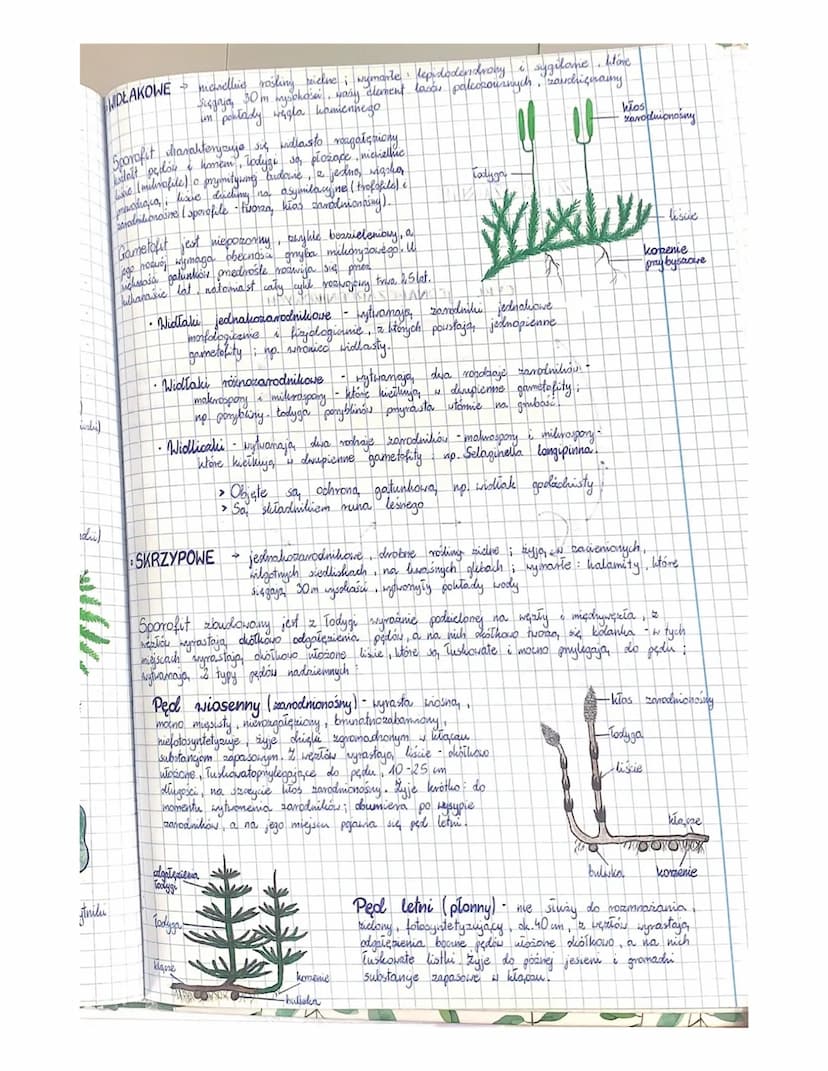 WIDŁAKOWE → niewielkie rośliny zielne ; wymarłe : lepidodendrony i sygilarie, które
sięgają 30 m wysokości, ważny element lasów paleozoicznych, zawdzięczamy
im pokłady węgla kamiennego
kłos
zarodnionośny
łodyga
liście
korzenie
przybyszowe
Sporofit charakteryzuje się widlasto rozgałęziony
kształt pędów i korzeni, łodygi są płożące, niewielkie
liście (mikrofile) o prymitywnej budowie, z jedną wiązką
przewodzącą, liście dzielimy na asymilacyjne (trofofile) i
zarodnionośne (sporofile - tworzą kłos zarodnionośny).
Gametofit jest niepozorny, zwykle bezzieleniowy, a
jego rozwój wymaga obecności grzyba mikoryzowego. U
większości gatunków przedrośle rozwija się przez
kilkanaście lat, natomiast cały cykl rozwojowy trwa 25 lat.
• Widłaki jednakozarodnikowe - wytwarzają zarodniki jednakowe
morfologicznie i fizjologicznie, z których powstają jednopienne
gametofity ; np. wroniec widlasty.
• Widłaki różnozarodnikowe - wytwarzają dwa rodzaje zarodników -
makrospory i mikrospory - które kiełkują w dwupienne gametofity ;
np. porybliny. Łodyga poryblinów przyrasta wtórnie na grubość.
• Widliczki - wytwarzają dwa rodzaje zarodników - makrospory i mikrospory -
które kiełkują w dwupienne gametofity ; np. Selaginella longipinna.
> Objęte są ochroną gatunkową, np. widłak goździsty
> Są składnikiem runa leśnego
: SKRZYPOWE → jednakozarodnikowe, drobne rośliny zielne ; żyją w zacienionych,
wilgotnych siedliskach, na kwaśnych glebach ; wymarłe : kalamity, które
sięgają 30 m wysokości, wytworzyły pokłady wody
Sporofit zbudowany jest z łodygi wyraźnie podzielonej na węzły i międzywęźla, z
węzłów wyrastają okółkowo odgałęzienia pędów, a na nich okółkowo tworzą się kolanka - w tych
miejscach wyrastają okółkowo ułożone liście, które są łuskowate i mocno przylegają do pędu ;
wytwarzają 2 typy pędów nadziemnych :
Pęd wiosenny (zarodnionośny) - wyrasta wiosną,
mocno mięsisty, nierozgałęziony, brunatnozabarwiony,
niefotosyntetyzuje, żyje dzięki zgromadzonym w kłączu
substancjom zapasowym. Z węzłów wyrastają liście - okółkowo
ułożone, łuskowatoprzylegające do pędu, 10-25 cm
długości, na szczycie kłos zarodnionośny. Żyje krótko : do
momentu wytworzenia zarodników ; obumiera po wysypie
zarodników, a na jego miejscu pojawia się pęd letni.
kłos zarodnionośny
łodyga
liście
kłącze
bulwka
korzenie
odgałęzienia
łodygi
łodyga
kłącze
korzenie
bulwka
Pęd letni (płonny) - nie służy do rozmnażania,
zielony, fotosyntetyzujący, ok. 40 cm, z węzłów wyrastają
odgałęzienia boczne pędów ułożone okółkowo, a na nich
łuskowate listki. Żyje do późnej jesieni i gromadzi
substancje zapasowe w kłączu.